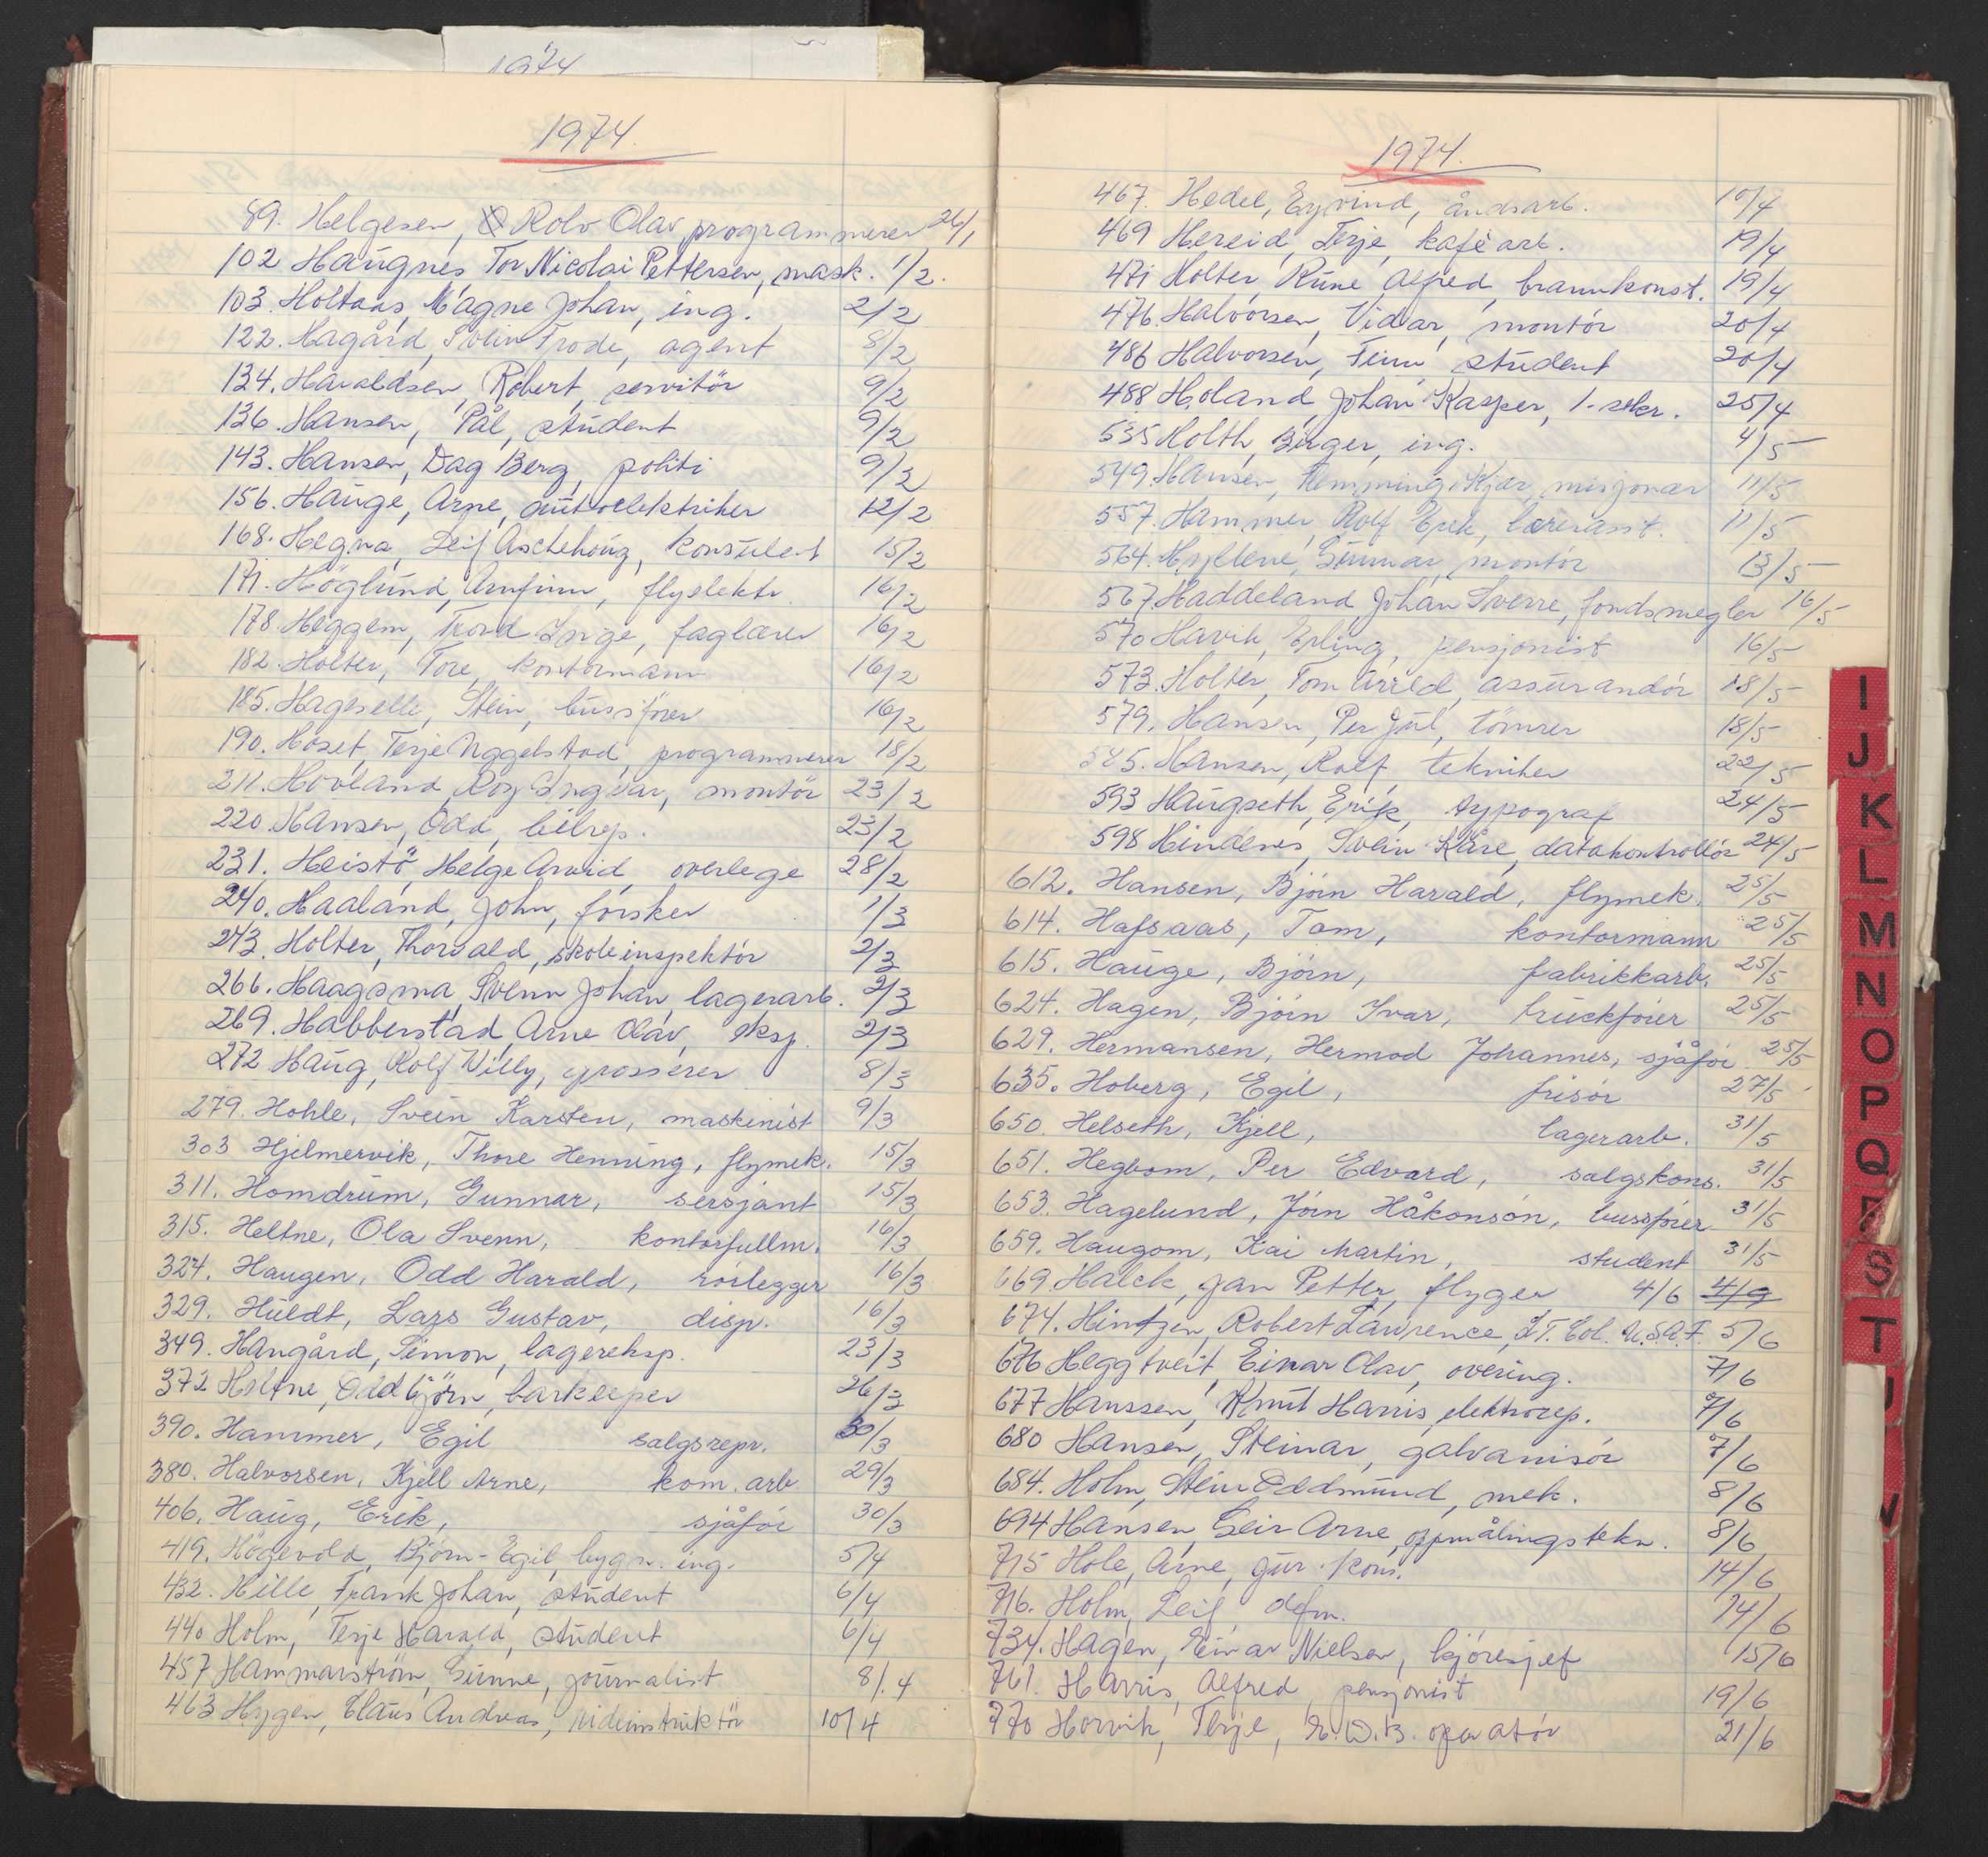 1974
1974.
89. Helgesen, Rolv Olav, programmerer 26/1
102 Haugnes Tor Nicolai Pettersen, mask. 1/2.
103. Holtaas, Magne Johan, ing. 2/2
122. Hagård, Svein Frode, agent 8/2
134. Haraldsen, Robert, servitör 9/2
136. Hansen, Pål, student 9/2
143. Hansen, Dag Berg, politi 9/2
156. Hauge, Arne, autoelektriker 12/2
168. Hegna, Leif Aschehoug, konsulent 15/2
171. Höglund, Arnfinn, flyelektr. 16/2
178. Heggem, Trond Inge, faglærer 16/2
182. Holter, Tore, kontormann 16/2
185. Hageselle, Stein, bussfører 16/2
190. Hoset, Terje Uggelstad, programmerer 18/2
211. Hovland, Roy Ingvar, montör 23/2
220. Hansen, Odd, bilrep. 23/2
231. Heistö, Helge Arvid, overlege 28/2
240. Haaland, John, forsker 1/3
243. Holter, Thorvald, skoleinspektör 2/3
266. Haagsma, Svenn Johan, lagerarb. 2/3
269. Habberstad, Arne Olav, eksp. 2/3
272 Haug, Rolf Willy, grosserer 8/3
279. Hohle, Svein Karsten, maskinist 9/3
303 Hjelmervik, Thore Henning, flymek. 15/3
311. Homdrum, Gunnar, sersjant 15/3
315. Heltne, Ola Svenn, kontorfullm. 16/3
324. Haugen, Odd Harald, rörlegger 16/3
329. Huldt, Lars Gustav, disp. 16/3
349. Haugård, Simon, lagereksp. 23/3
372 Holtne, Oddbjörn, barkeeper 26/3
390. Hammer, Egil salgsrepr. 30/3
380. Halvorsen, Kjell Arne, kom. arb 29/3
406. Haug, Erik, sjåför 30/3
419. Högevold, Bjørn-Egil, bygn. ing. 5/4
432. Hille, Frank Johan, student 6/4
440 Holm, Terje Harald, student 6/4
457 Hammarström, Gunne, journalist 8/.4
463 Hygen, Claus Andreas, rideinstruktör 10/4
1974.
467. Hedel, Eyvind, åndsarb. 10/4
469 Hereid, Terje, kaféarb. 19/4
471 Holter, Rune Alfred, brannkonst. 19/4
476. Halvorsen, Vidar, montör 20/4
486 Halvorsen, Finn student 20/4
488 Holand, Johan Kasper, 1. sekr. 25/4
535 Holth, Birger, ing. 4/5
549. Hansen, Flemming Kjær, misjonær 11/5
557. Hammer, Rolf Erik, lærerasst. 11/5
564. Hyllene, Gunnar, montör 13/5
567. Haddeland, Johan Sverre, fondsmegler 16/5
570 Havik, Erling, pensjonist 16/5
573. Holter, Tom Arild, assurandör 18/5
579. Hansen, Per Jul, tömrer 18/5
585. Hansen, Rolf, tekniker 22/5
593 Haugseth, Erik, typograf 24/5
598 Hindenes, Svein Kåre, datakontrollör 24/5
612. Hansen, Björn Harald, flymek. 25/5
614. Hafsaas, Tom, kontormann 25/5
615. Hauge, Björn, fabrikkarb. 25/5
624. Hagen, Björn Ivar, truckförer 25/5
629. Hermansen, Hermod Johannes, sjåför 25/5
635. Hoberg, Egil, frisör 27/5
650. Helseth, Kjell, lagerarb. 31/5
651. Hegbom, Per Edvard, salgskons. 31/5
653. Hagelund, Jörn Håkonsön, bussförer 31/5
659. Haugom, Kai Martin, student 31/5
669. Halck, Jan Petter, flyger 4/6 4/9
674. Hintzen, Robert Lawrence, LT. Col. U.S.A.F. 5/6
676 Heggtveit, Einar Olav, overing. 7/6
677 Hanssen, Knut Harris, elektrorep. 7/6
680 Hansen, Steinar, galvanisör 7/6
684. Holm, Stein Oddmund, mek. 8/6
694 Hansen, Geir Arne, oppmålingstekn. 8/6
715 Hole, Arne, jur. kons. 14/6
716. Holm, Leif, dofm. 14/6
734. Hagen, Einar Nielsen, kjöresjef 15/6
761. Harris, Alfred, pensjonist 19/6
770 Horvik, Terje, E.D.B. operatör 21/6
I
J
K
L
M
N
O
P
Q
R
S
T